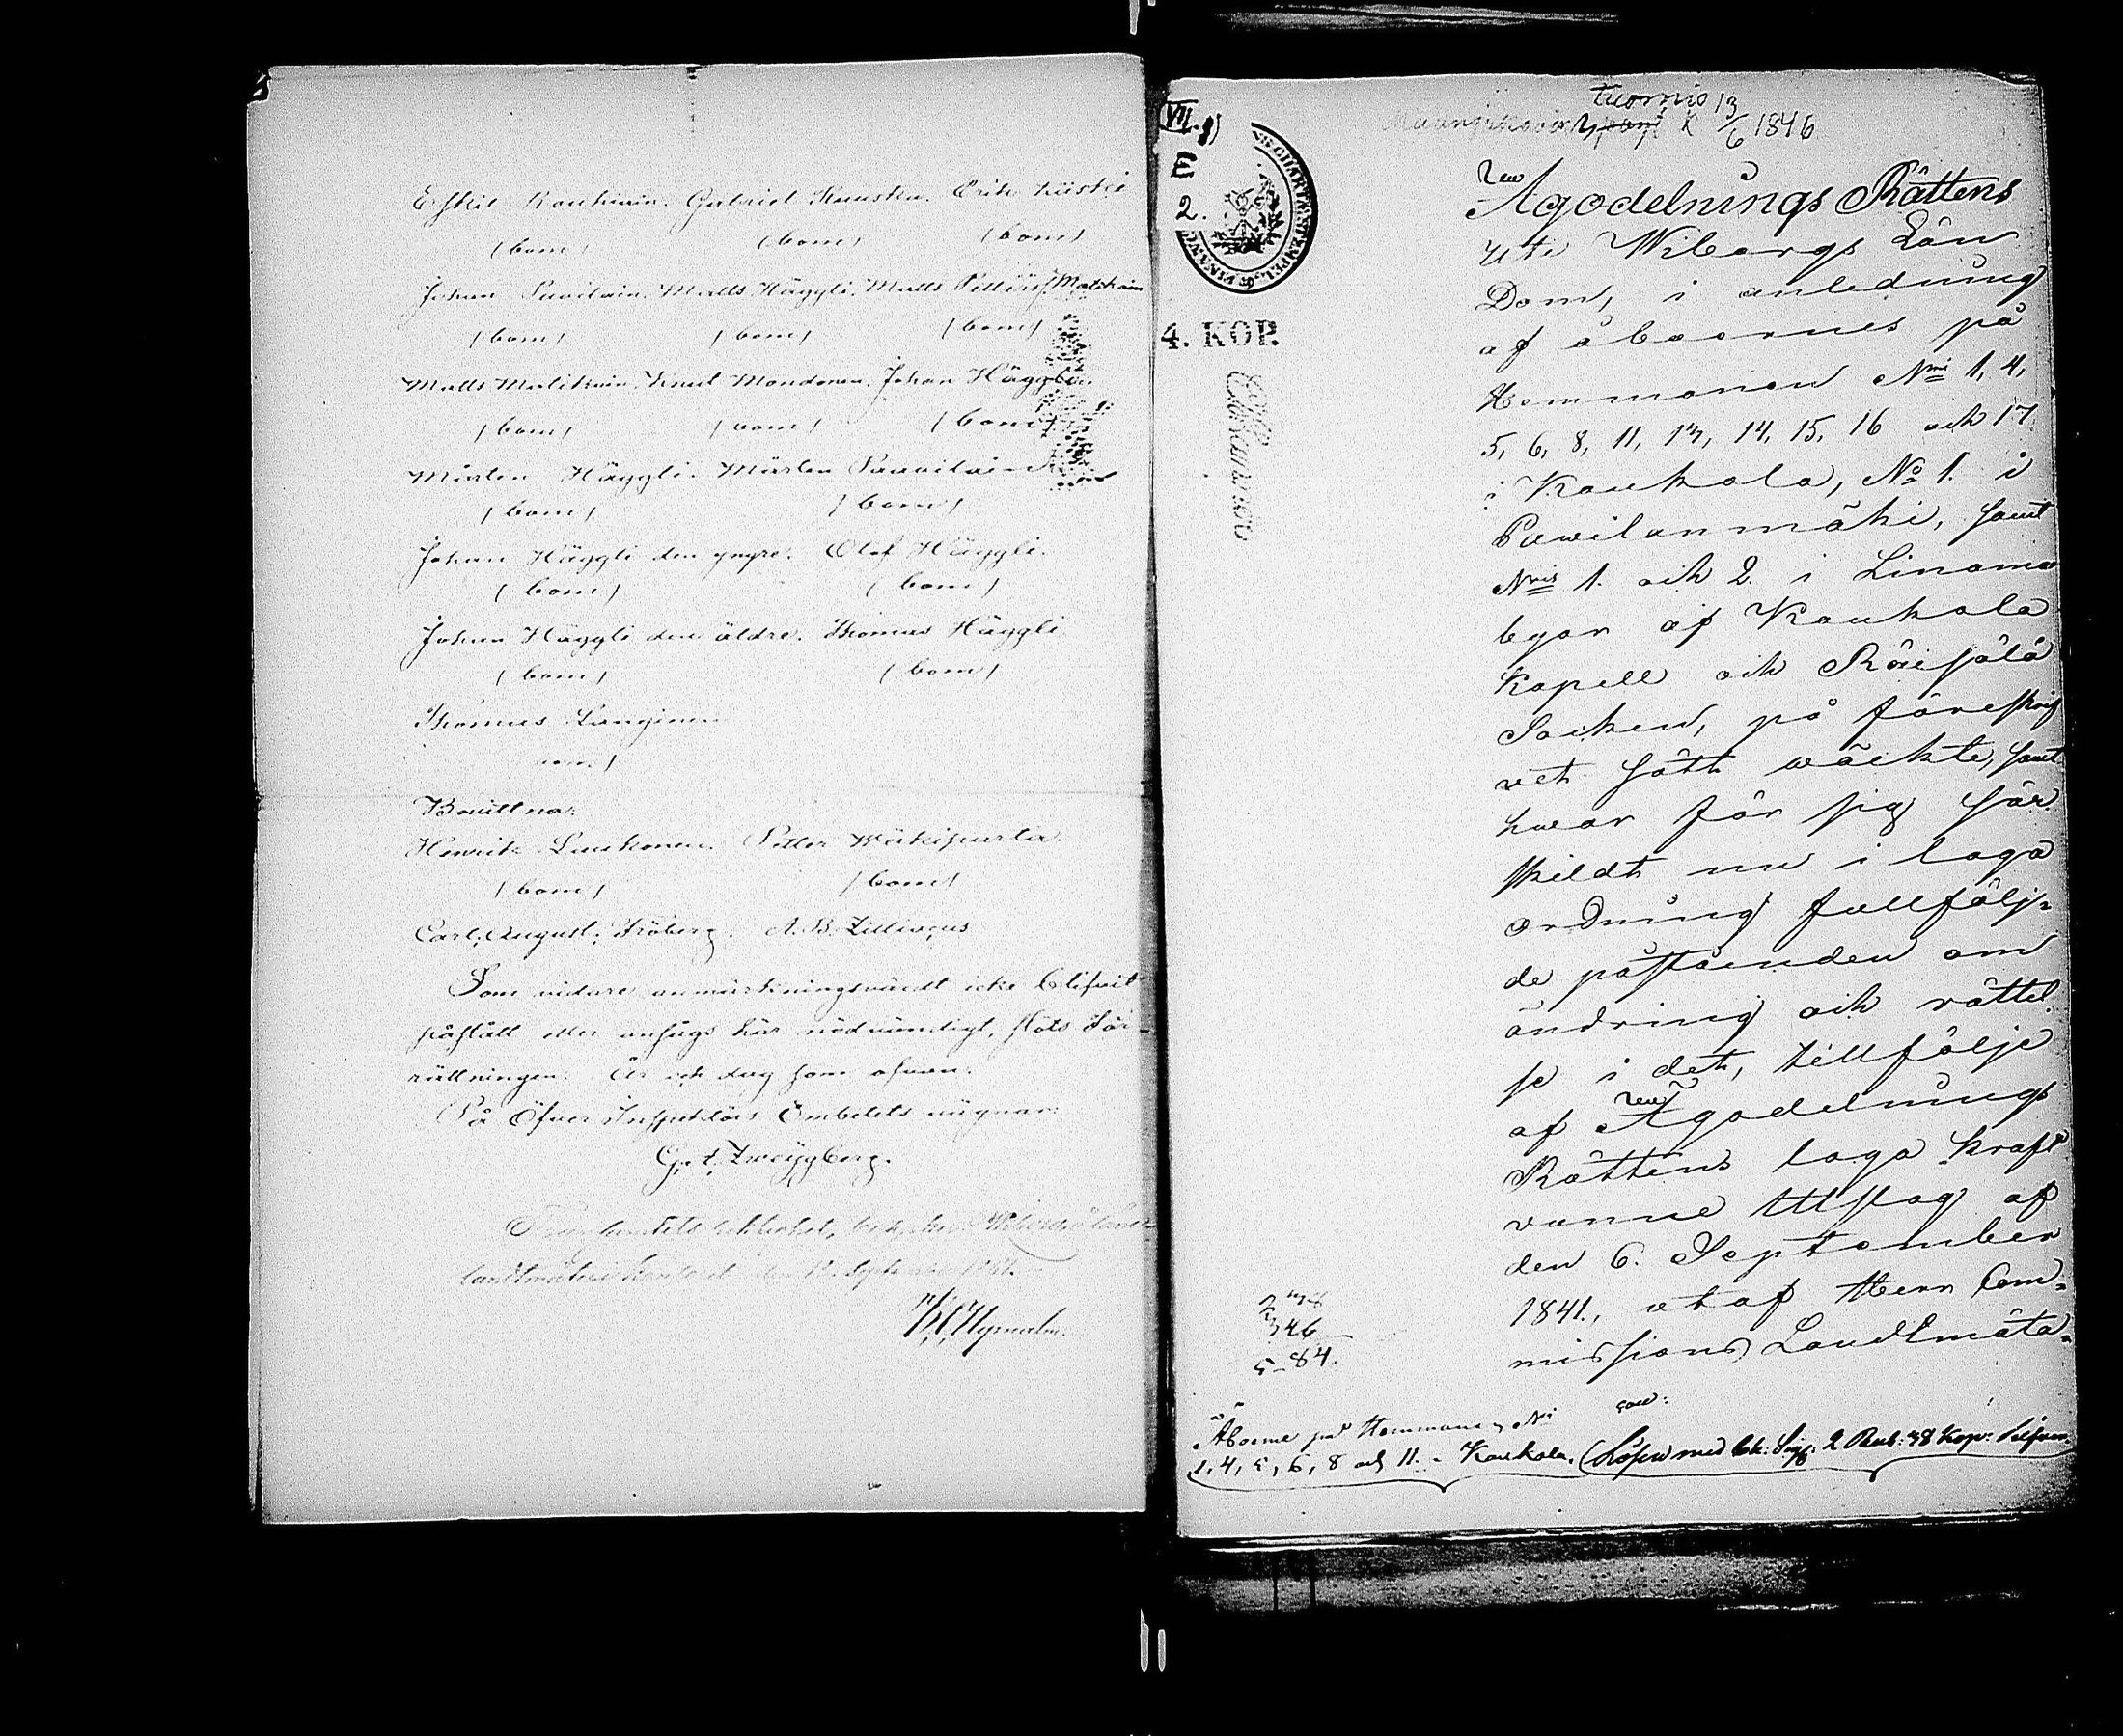 Eskil Kaukiain. Gabriel Kuuska. Erik Kiiski
(bom) (bom) (bom)
Johan Paavilain. Matts Häggli. Matts Pettersf. Matikain
(bom) (bom) (bom)
Matts Matikain. Knut Mondonen. Johan Hägglin
(bom) (bom) (bom)
Mårten Häggli. Mårten Paavilain
(bom) (bom)
Johan Häggli den yngre. Olof Häggli.
(bom) (bom)
Johan Häggli den äldre. Thomas Häggli
(bom) (bom)
Thomas
bom)
Bevittna:
Henrik Luukonen. Petter
(bom) (bom)
Carl, August, Fröberg. A. B. Zilliacus
Som vidare anmärkningsvärdt icke blifvit
påstått eller ansågs här nödvändigt, slöts För-
rättningen. År och dag som ofvan.
På Öfver Inspektörs Embetets vägnar:
G. A. Zweygberg.
landtmäteri kontoret den 12. September
VII. 8)
E
2.
4. KOP.
tuomio 13/6 1846
Ägodelnings Rättens
uti Wiborgs Län
Dom, i anledning
af åboernes på
Hemmanen Nris 1, 4,
5, 6, 8, 11, 13, 14, 15, 16 och 17
i Kaukola, No 1. i
Pawilanmäki, samt
Nris 1. och 2. i Linamo
byar af Kaukola
Kapell och Räisälä
Socken, på föreskrif
vet sätt wäckte, samt
hwar för sig sär
skildt nu i laga
ordning fullfölj-
de påståenden om
ändring och rättel
se i det, tillfölje
af Ägodelnings
Rättens laga kraft
vunne Utslag af
den 6. September
1841., utaf Herr Com-
missions Landtmäta-
346
5-84.
Åboerne på Hemmanen Nri
1, 4, 5, 6, 8 och 11. i Kaukola. (Lösen med bet: Sigf: 2 Rub: 38 Kop: Silfver.